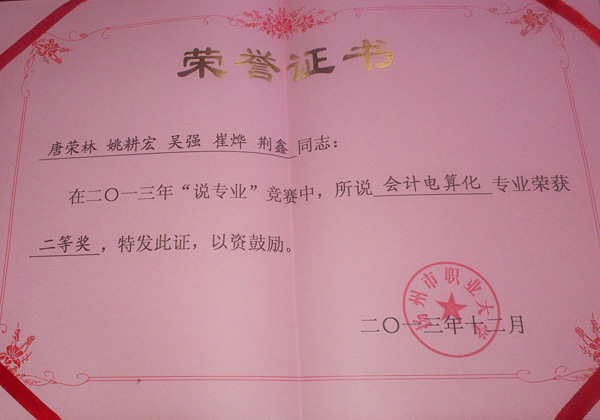 荣誉证书
唐荣林 姚耕宏 吴强 崔烨 荆鑫 同志：
在二〇一三年“说专业”竞赛中，所说 会计电算化 专业荣获
二等奖，特发此证，以资鼓励。
扬州市职业大学
二〇一三年十二月